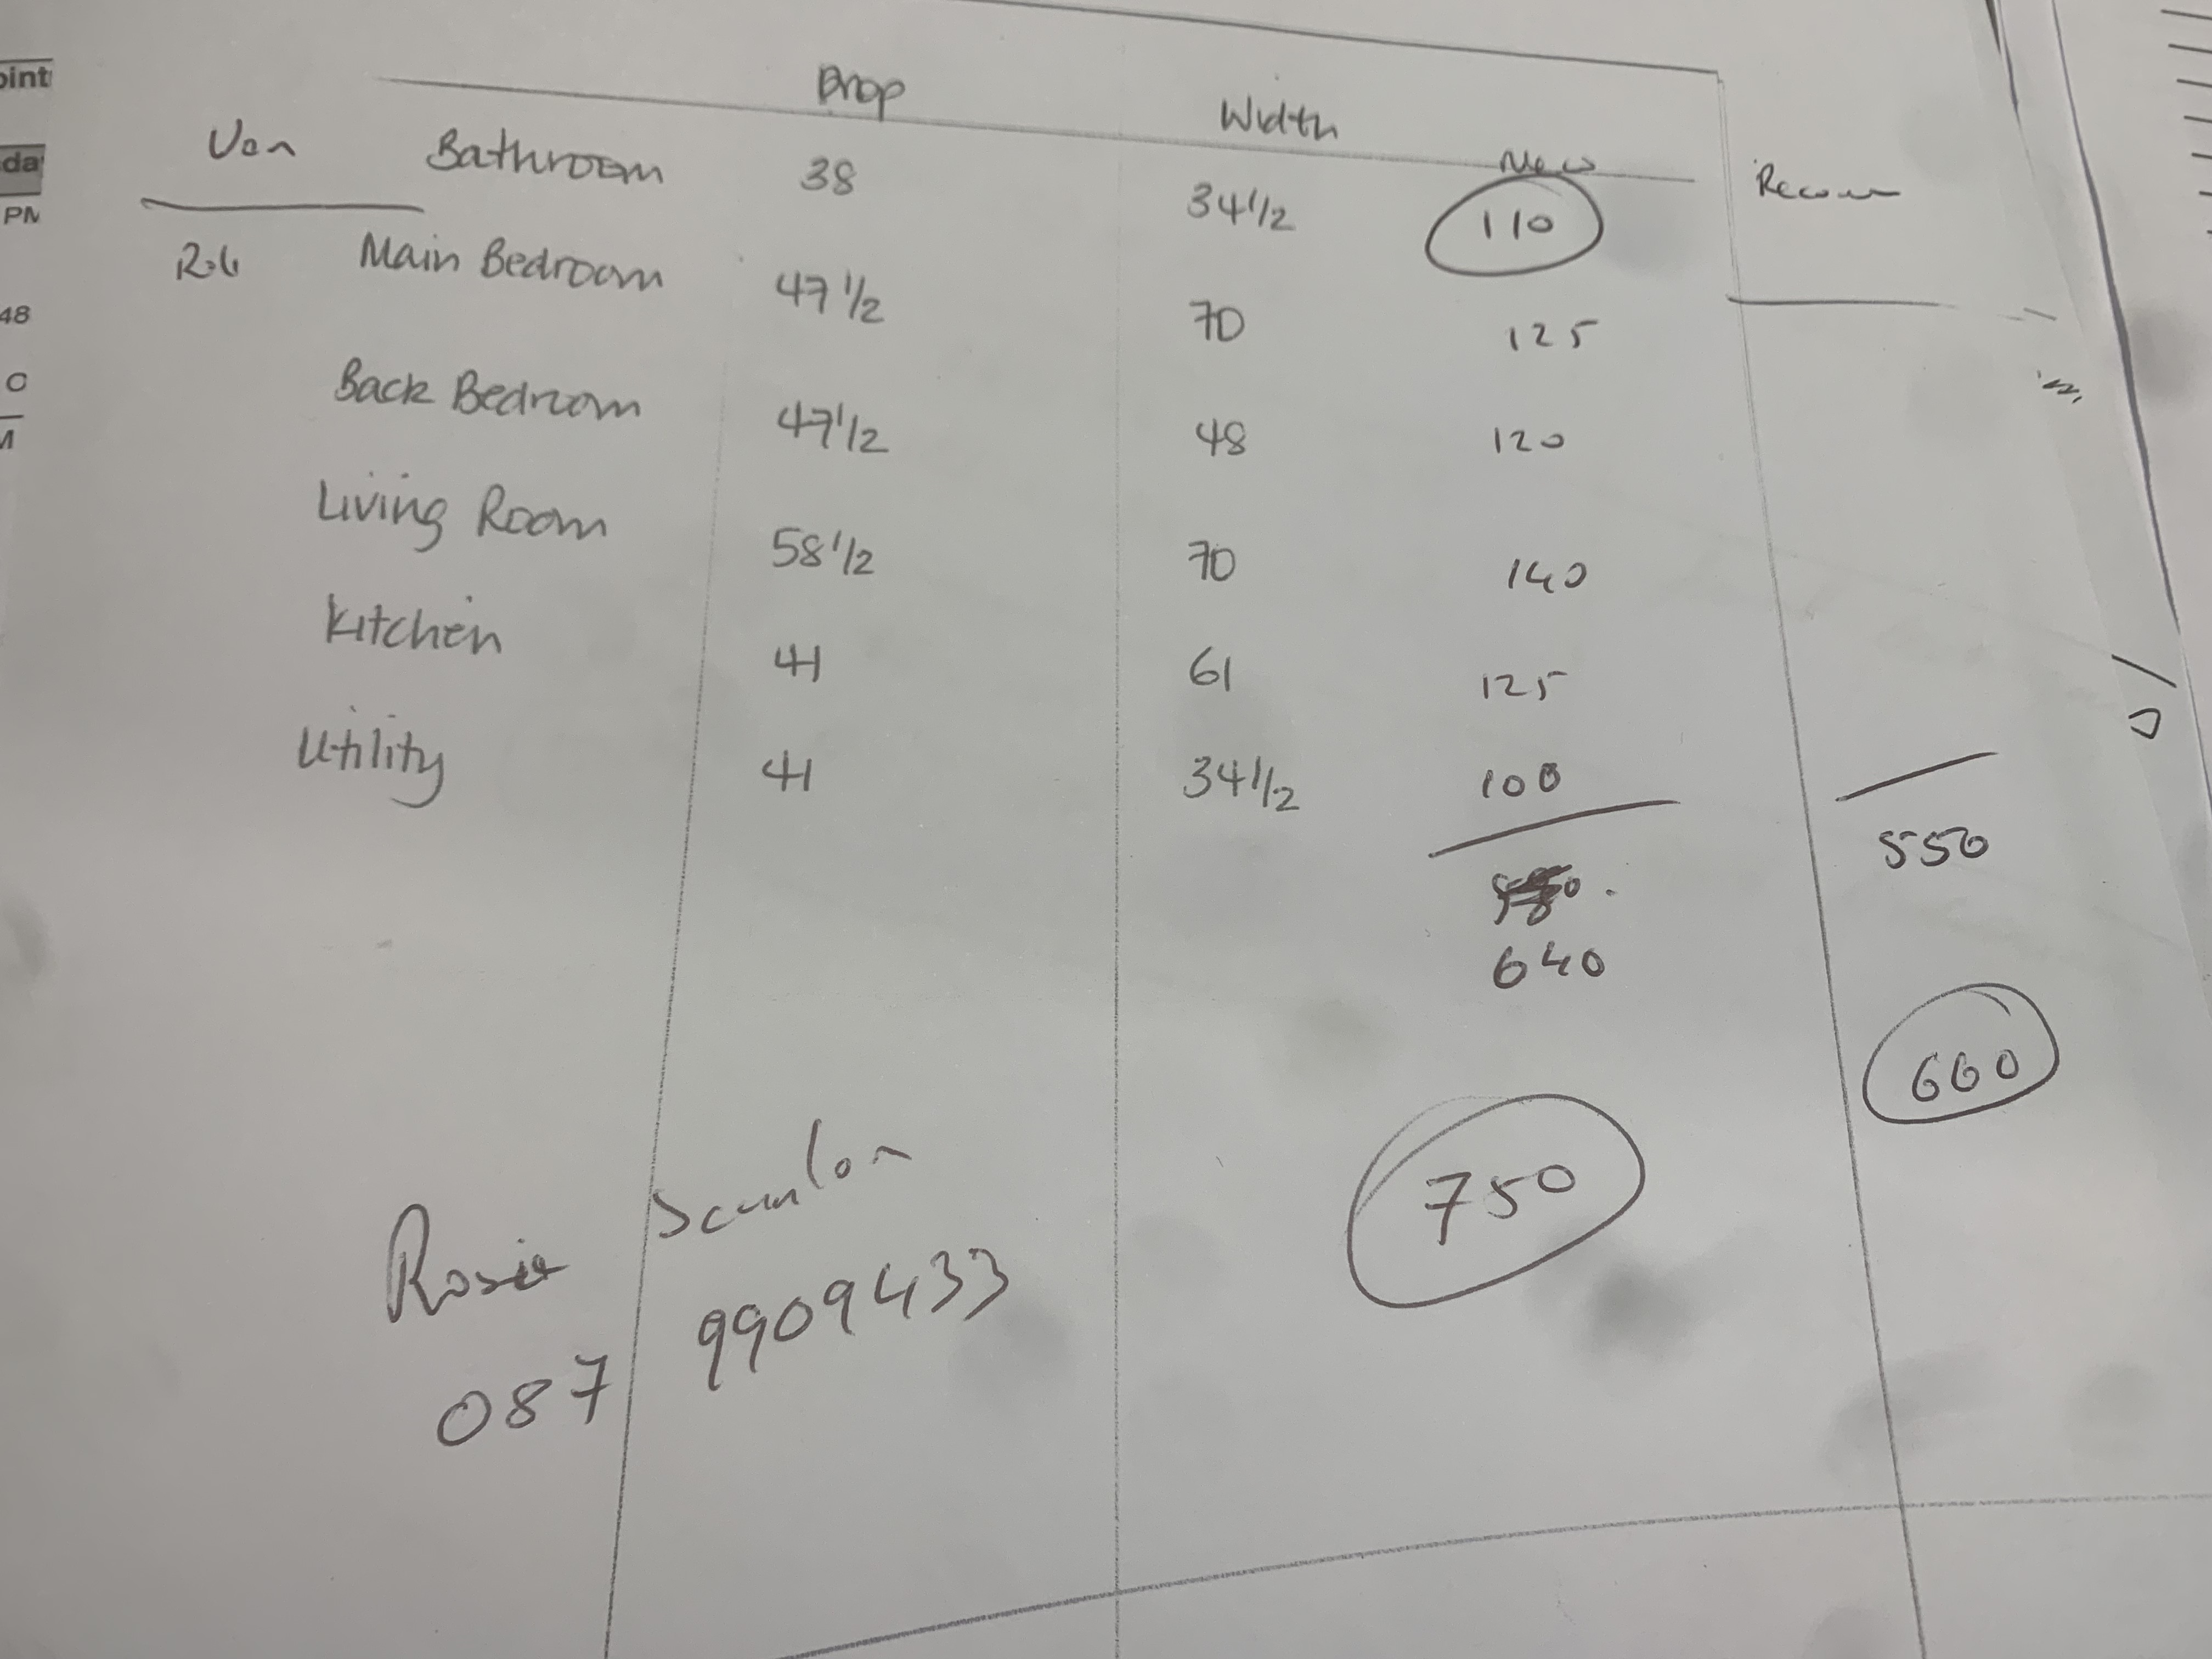 Drop Width New
Ven Bathroom 38 34 1/2 110 Recover
Main Bedroom 47 1/2 70 125
Back Bedroom 47 1/2 48 120
Living Room 58 1/2 70 140
Kitchen 41 61 125
Utility 41 34 1/2 100
550
640
660
750
Scanlon
087 9909433
oint
da
PM
48